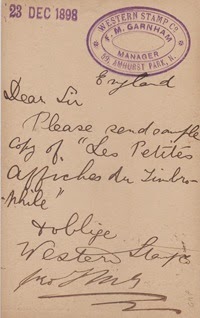 23 DEC 1898
WESTERN STAMP CO
F. M. GARNHAM
MANAGER
59, AMHURST PARK, N.
England
Dear Sir
Please send sample
copy of "Les Petites
Affiches du Timbro-
phile"
& oblige
Western Stamp Co